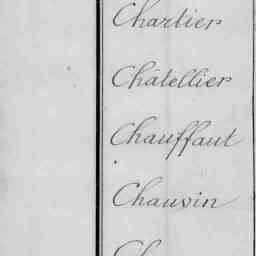 Chartier
Châtellier
Chauffaut
Chauvin